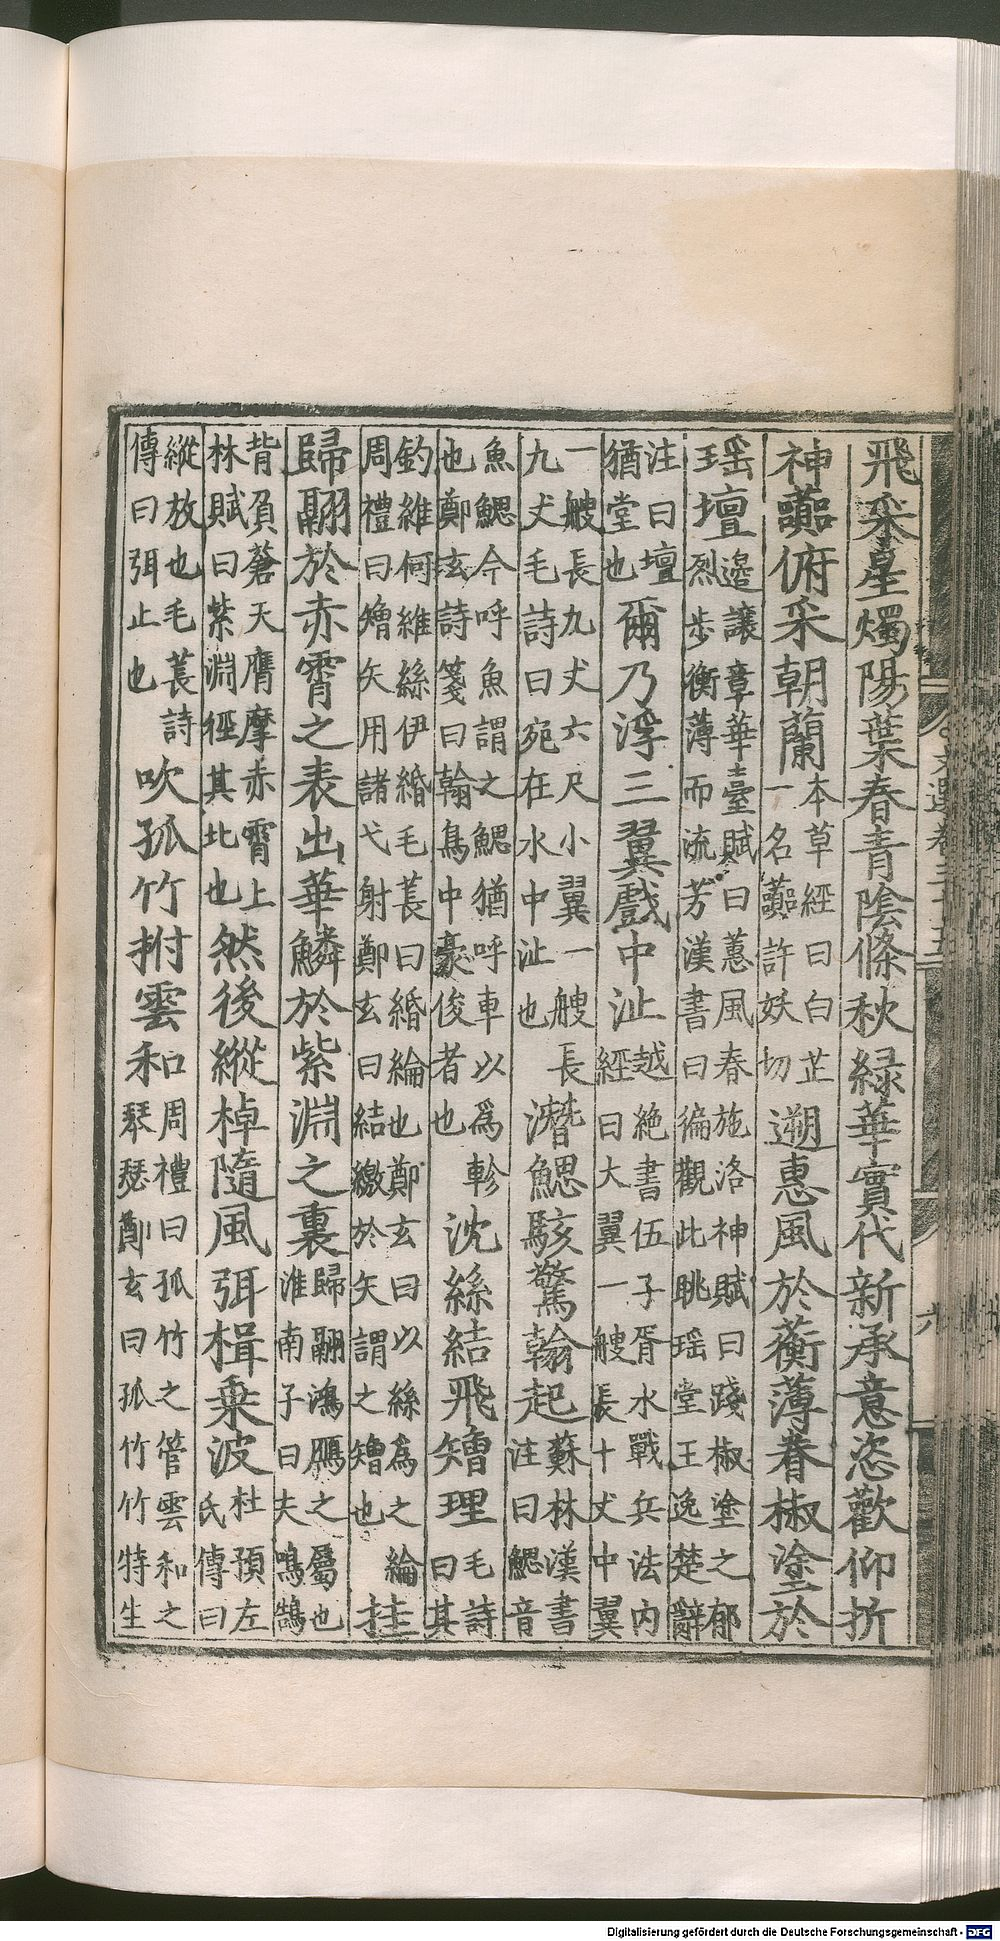 飛采星燭陽葉春青陰條秋緑華實代新承意恣歡仰折
神虈俯采朝蘭
本草經曰白芷
一名虈許妖切
遡惠風於蘅薄眷椒塗於
瑶壇
邊讓章華臺賦曰蕙風春施洛神賦曰踐椒塗之郁
烈步衡薄而流芳漢書曰徧觀此眺瑶堂王逸楚辭
注曰壇
猶堂也
爾乃浮三翼戲中沚
越絶書伍子胥水戰兵法内
經曰大翼一艘長十丈中翼
一艘長九丈六尺小翼一艘長
九丈毛詩曰宛在水中沚也
潛鰓駭驚翰起
蘇林漢書
注曰鰓音
魚鰓今呼魚謂之鰓猶呼車以爲軫
也鄭玄詩箋曰翰鳥中豪俊者也
沈絲結飛矰理
毛詩
曰其
釣維何維絲伊緡毛萇曰緡綸也鄭玄曰以絲為之綸
周禮曰矰矢用諸弋射鄭玄曰結繳於矢謂之矰也
挂
歸翮於赤霄之表出華鱗於紫淵之裏
歸翮鴻鴈之屬也
淮南子曰夫鳴鵠
背負蒼天膺摩赤霄上
林賦曰紫淵徑其北也
然後縱棹隨風弭楫乗波
杜預左
氏傳曰
縱放也毛萇詩
傳曰弭止也
吹孤竹拊雲和
周禮曰孤竹之管雲和之
琴瑟鄭玄曰孤竹竹特生
Digitalisierung gefördert durch die Deutsche Forschungsgemeinschaft - DFG